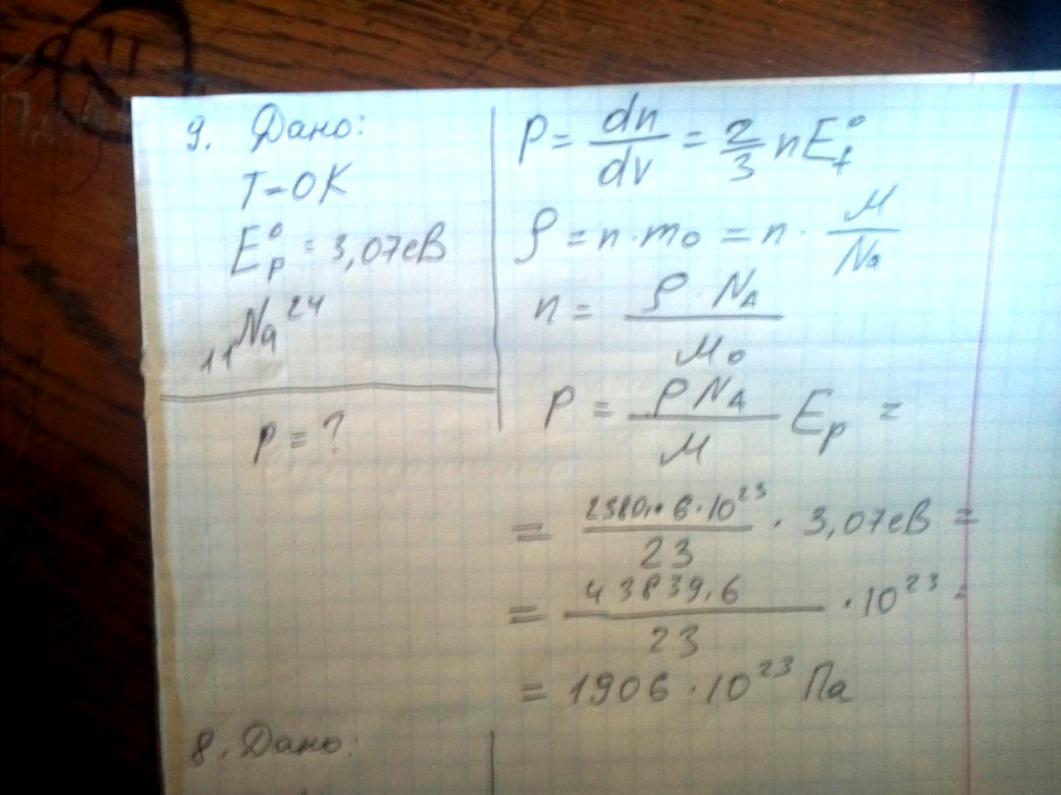 9. Дано:
T=0K
E°p = 3,07eB
11Na²⁴
p = ?
P = dn/dv = 2/3 n E°f
ρ = n·m₀ = n · M/Na
n = ρ·NA/M₀
P = ρNA/M Ep =
= 2380·6·10²³/23 · 3,07eB =
= 43839,6/23 · 10²³ =
= 1906·10²³ Па
8. Дано: